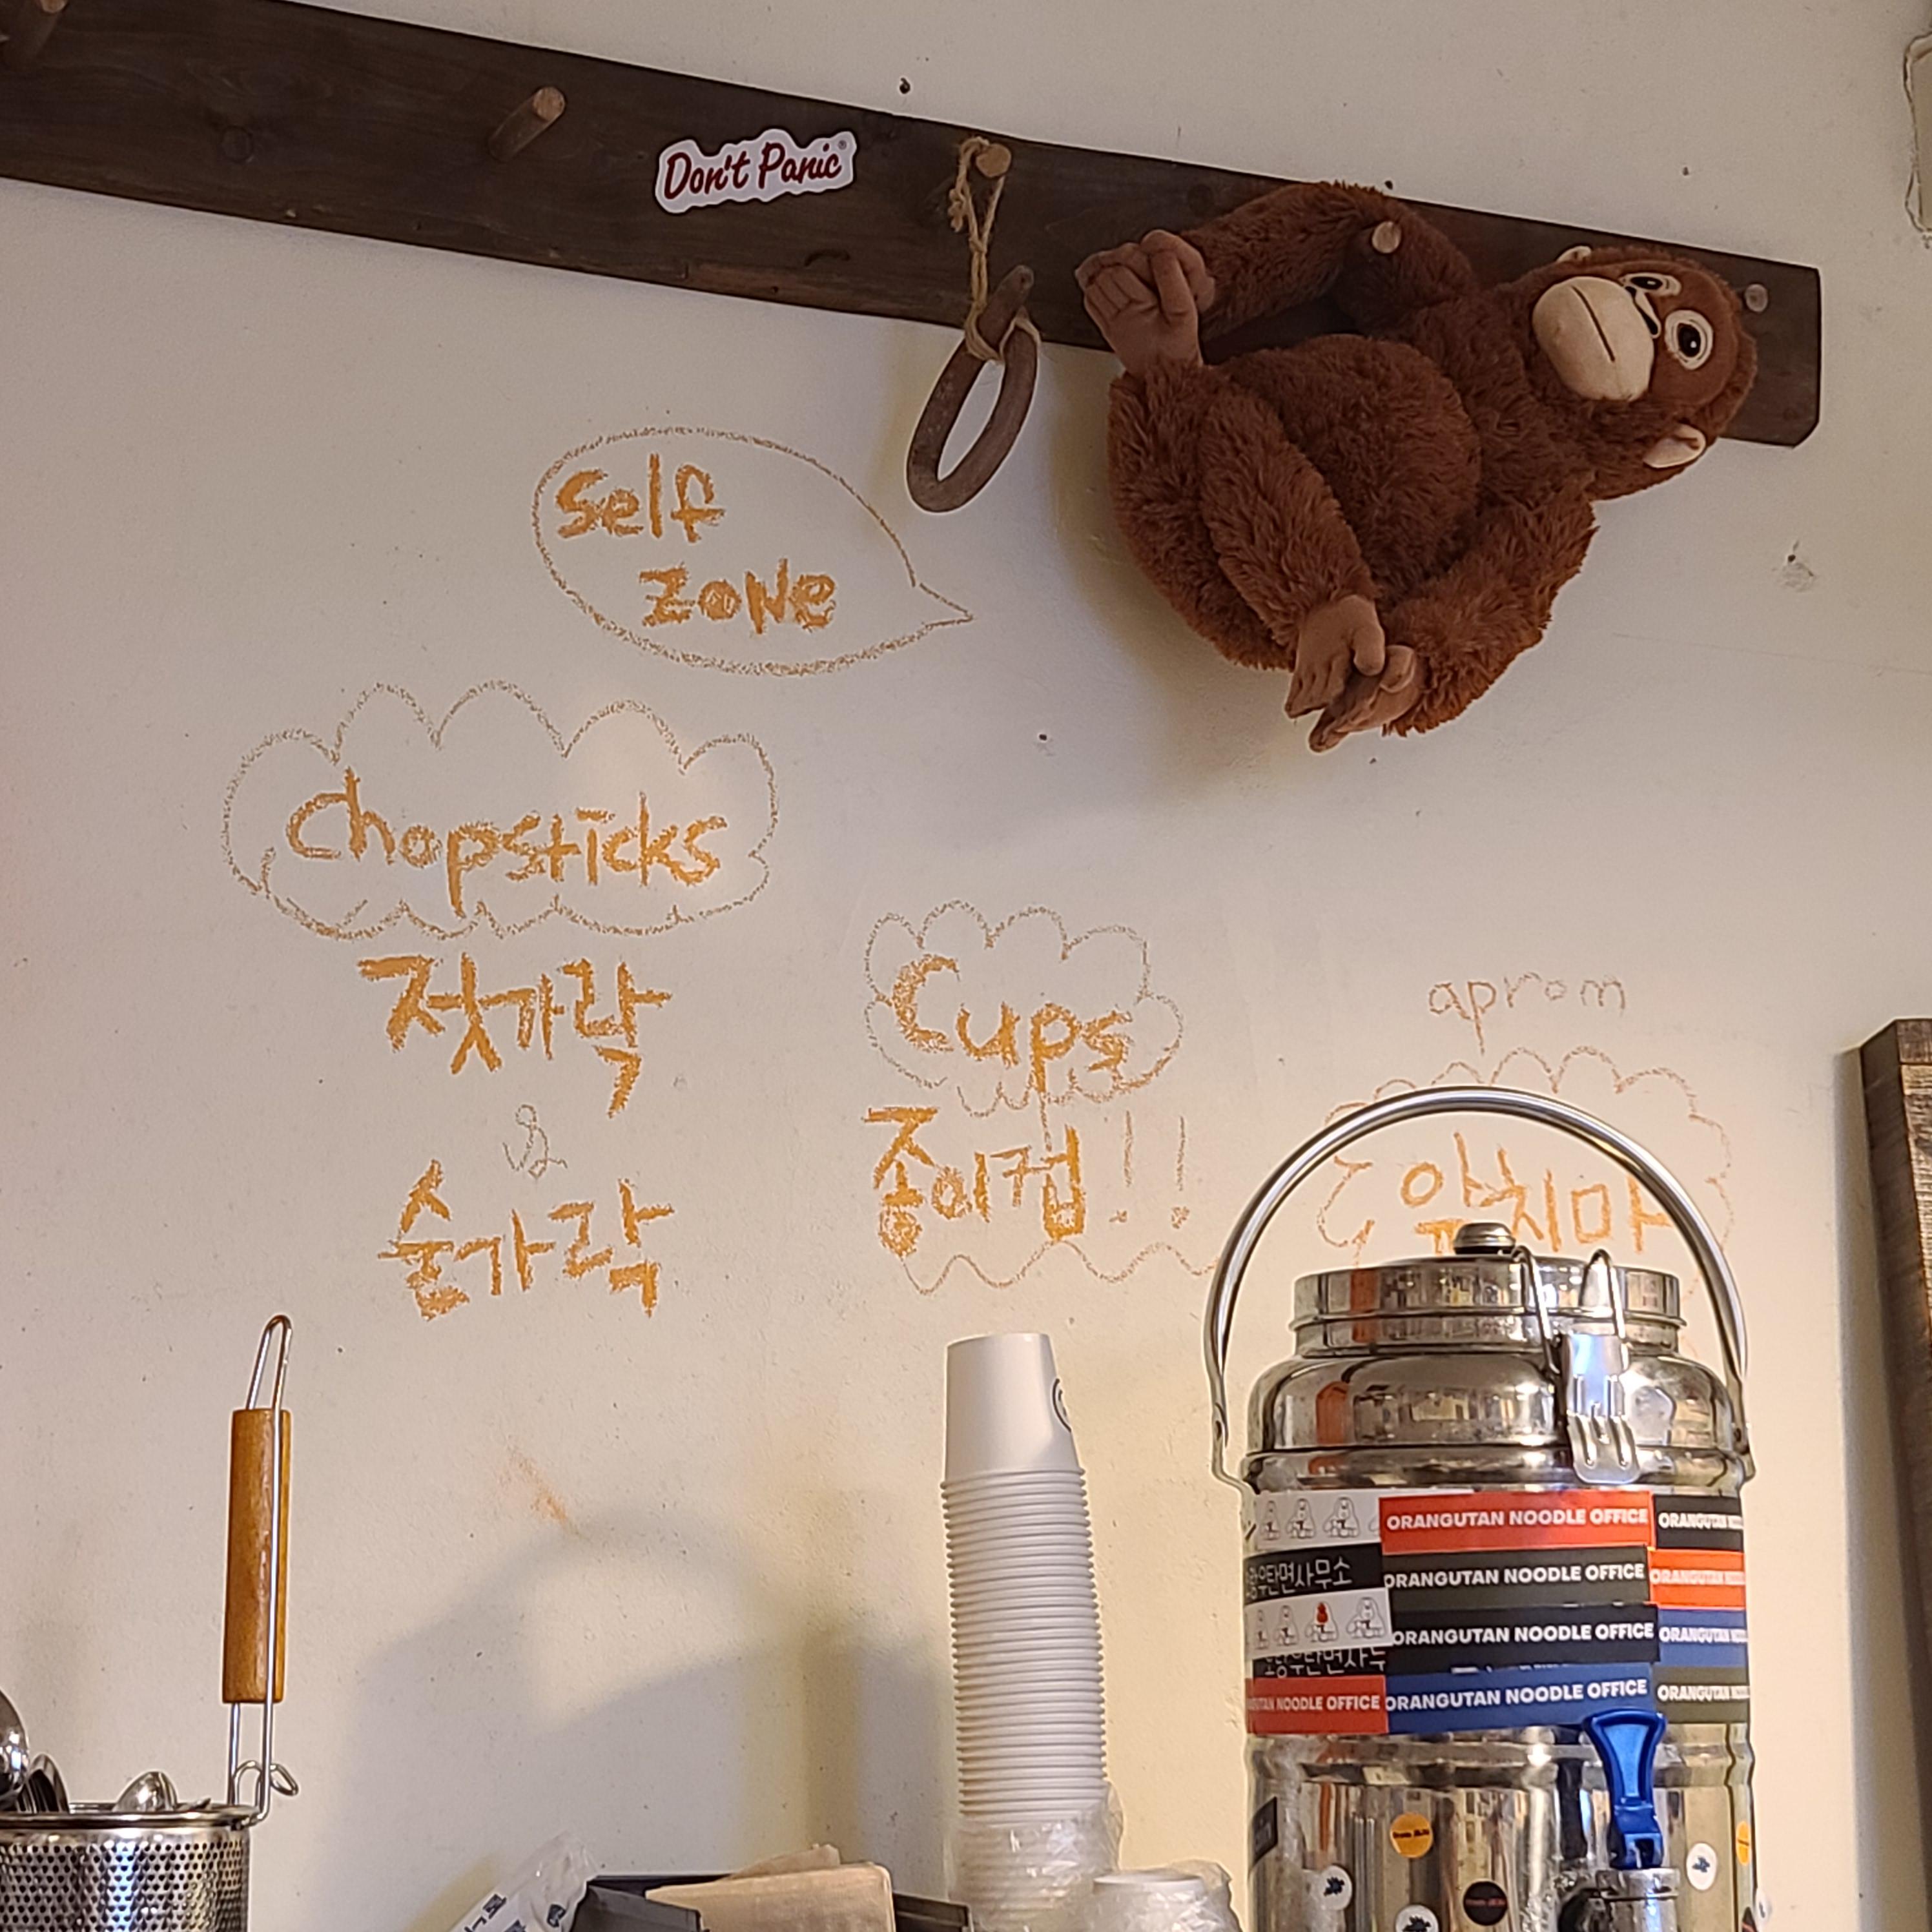 Don't Panic®
self
zone
Chopsticks
젓가락
&
숟가락
Cups
종이컵!!
aprom
앞치마
ORANGUTAN NOODLE OFFICE
ORANGUTAN
ORANGUTAN NOODLE OFFICE
ORANGUTAN
ORANGUTAN NOODLE OFFICE
ORANGUTAN
NOODLE OFFICE
ORANGUTAN NOODLE OFFICE
ORANGUTAN